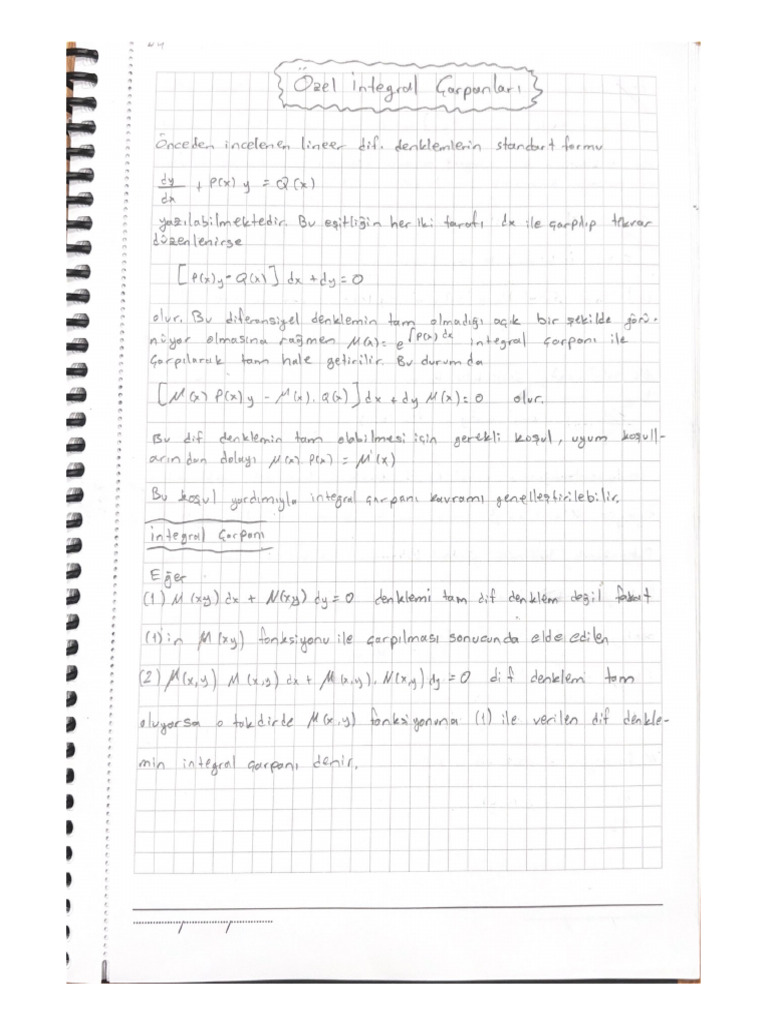 Özel integral Çarpanları
Önceden incelenen lineer dif. denklemlerin standart formu
dy/dx + P(x) y = Q(x)
yazılabilmektedir. Bu eşitliğin her iki tarafı dx ile çarpılıp tekrar
düzenlenirse
[P(x)y - Q(x)] dx + dy = 0
olur. Bu diferansiyel denklemin tam olmadığı açık bir şekilde görü-
nüyor olmasına rağmen μ(x) = e^∫P(x)dx integral çarpanı ile
çarpılarak tam hale getirilir. Bu durumda
[μ(x) P(x)y - μ(x). Q(x)] dx + dy μ(x) = 0 olur.
Bu dif denklemin tam olabilmesi için gerekli koşul, uyum koşull-
arından dolayı μ(x). P(x) = μ'(x)
Bu koşul yardımıyla integral çarpanı kavramı genelleştirilebilir.
integral Çarpanı
Eğer
(1) M(x,y) dx + N(x,y) dy = 0 denklemi tam dif denklem değil fakat
(1)'in μ(x,y) fonksiyonu ile çarpılması sonucunda elde edilen
(2) μ(x,y) M(x,y) dx + μ(x,y). N(x,y) dy = 0 dif denklem tam
oluyorsa o takdirde μ(x,y) fonksiyonuna (1) ile verilen dif denkle-
min integral çarpanı denir.